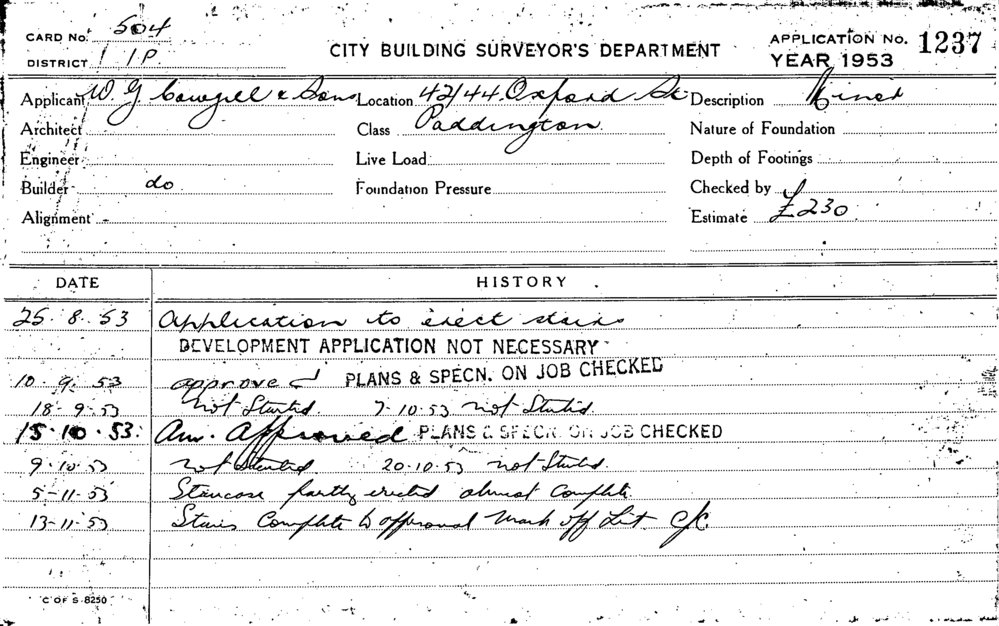 CARD No. 504
DISTRICT 1 P.
CITY BUILDING SURVEYOR'S DEPARTMENT
APPLICATION No. 1237
YEAR 1953
Applicant W. G. Cowgill & Sons Location 42/44 Oxford St Description Minor
Architect Class Paddington Nature of Foundation
Engineer Live Load Depth of Footings
Builder do Foundation Pressure Checked by
Alignment Estimate £230
DATE HISTORY
25. 8. 53 Application to erect stairs
DEVELOPMENT APPLICATION NOT NECESSARY
10. 9. 53 approved PLANS & SPECN. ON JOB CHECKED
18-9-53 Not Started. 7-10-53 not Started.
15.10.53. Am. Approved PLANS & SPECN. ON JOB CHECKED
9-10-53 not Started 20-10-53 not Started.
5-11-53 Staircase partly erected almost Complete.
13-11-53 Stairs Complete to approval Mark off List
C OF S 8250